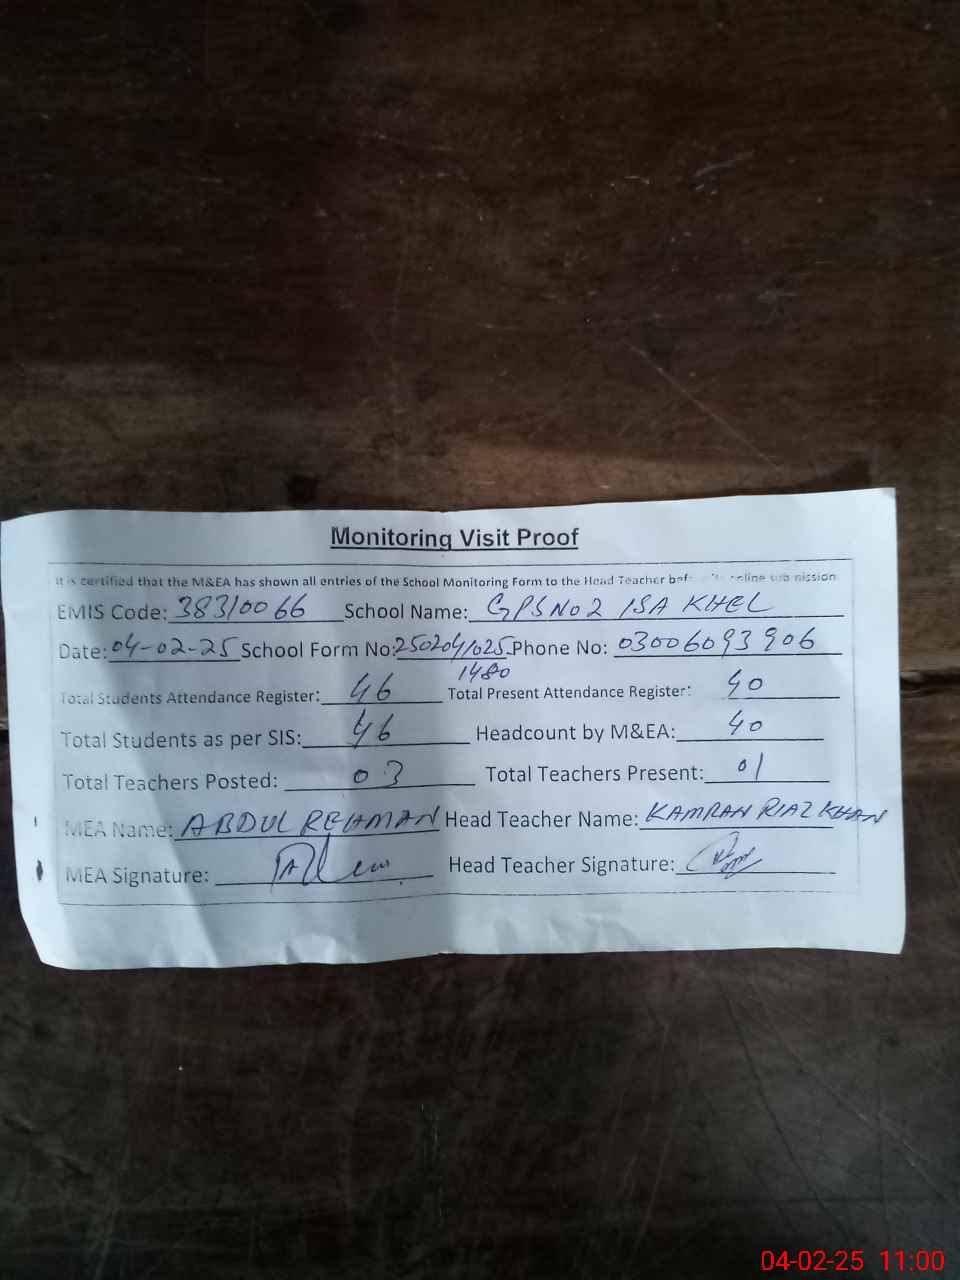 Monitoring Visit Proof
It is certified that the M&EA has shown all entries of the School Monitoring Form to the Head Teacher before its online submission
EMIS Code: 38310066 School Name: GPS No 2 ISA KHEL
Date: 04-02-25 School Form No: 250204/025 Phone No: 03006093906
1480
Total Students Attendance Register: 46 Total Present Attendance Register: 40
Total Students as per SIS: 46 Headcount by M&EA: 40
Total Teachers Posted: 03 Total Teachers Present: 01
MEA Name: ABDUL REHMAN Head Teacher Name: KAMRAN RIAZ KHAN
MEA Signature: Head Teacher Signature:
04-02-25 11:00